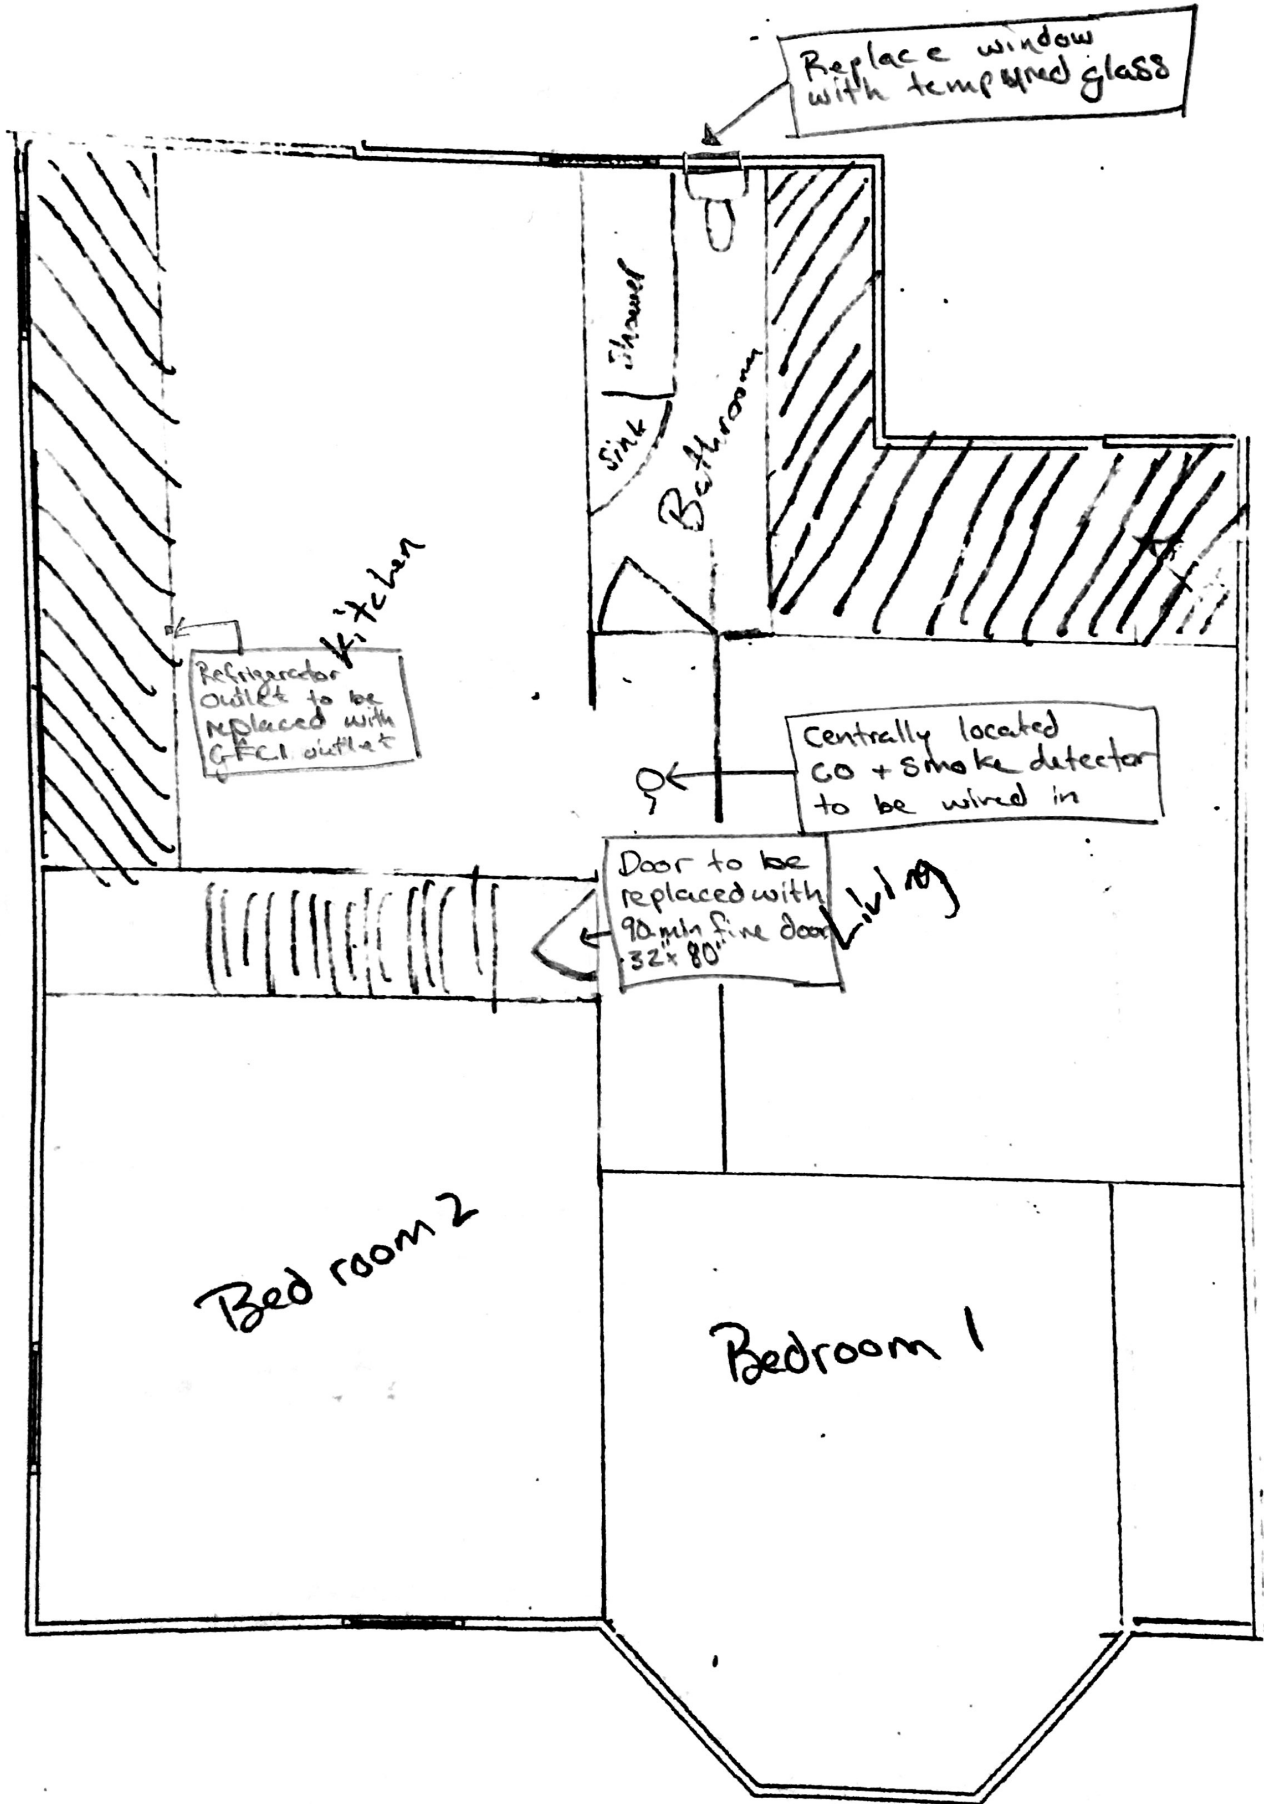 Replace window
with tempured glass
Shower
Sink
Bathroom
Kitchen
Refrigerator
outlet to be
replaced with
GFCI outlet
Centrally located
CO + Smoke detector
to be wired in
Door to be
replaced with
90 min fire door
32" x 80"
Living
Bedroom 2
Bedroom 1